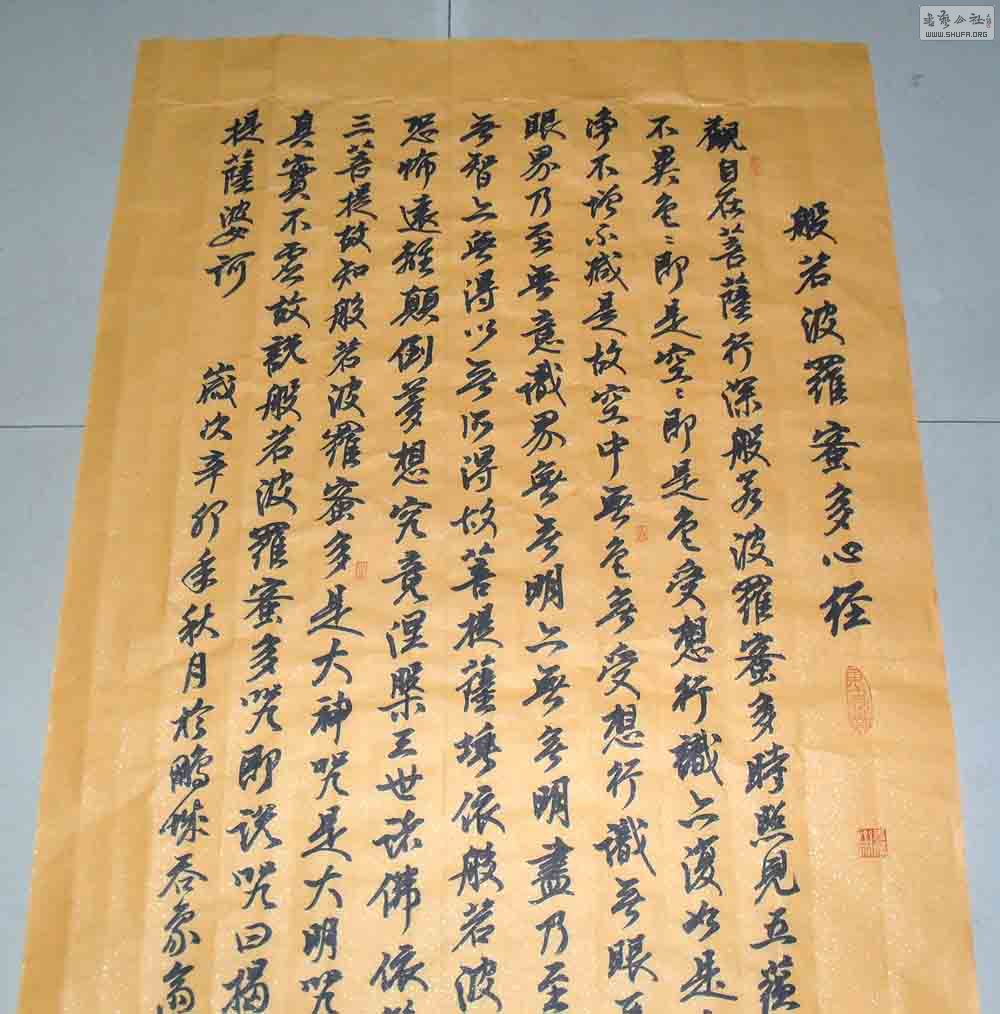 般若波羅蜜多心经
觀自在菩薩行深般若波羅蜜多時照見五蘊
不異色〻即是空〻即是色受想行識亦復如是
淨不增不減是故空中無色無受想行識無眼
眼界乃至無意識界無無明亦無無明盡乃至
無智亦無得以無所得故菩提薩埵依般若波
恐怖遠離顛倒夢想究竟涅槃三世諸佛依
三菩提故知般若波羅蜜多是大神咒是大明咒
真實不虛故說般若波羅蜜多咒即說咒曰揭
提薩婆訶
歲次辛卯年秋月於鵬城
WWW.SHUFA.ORG